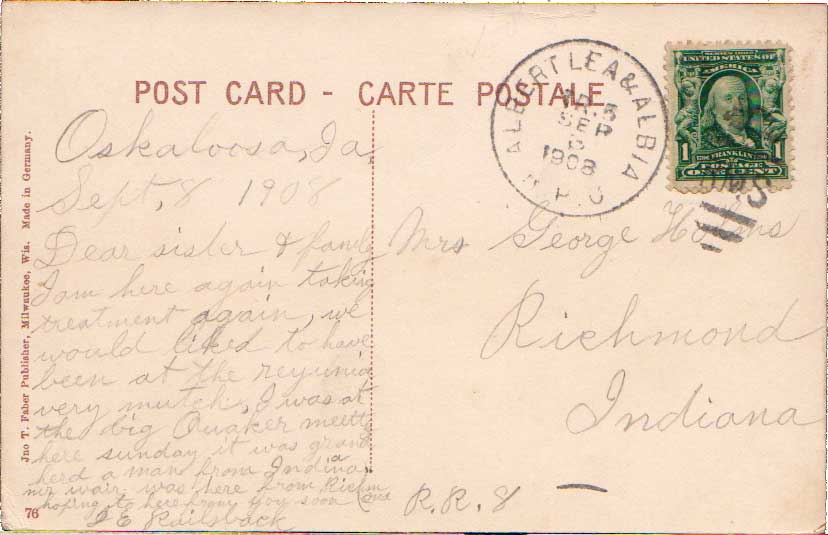 POST CARD - CARTE POSTALE
ALBERT LEA & ALBIA
TR. 5
SEP
8
1908
R.P.O
SERIES 1902
UNITED STATES OF
AMERICA
1 FRANKLIN 1
POSTAGE
ONE CENT
RMS
Oskaloosa, Ia,
Sept, 8 1908
Dear sister & family
I am here again taking
treatment again, we
would liked to have
been at the reyunia
very mutch, I was at
the big Quaker meetting
here sunday it was grand
herd a man from Indina,
mr was here from Richm
ond
hoping to here from you soon
E Railsback
Mrs George
Richmond
Indiana
R.R. 8
Jno T. Faber Publisher, Milwaukee, Wis. Made in Germany.
76